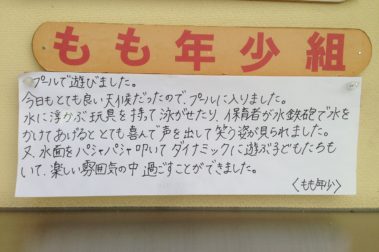 もも年少組
プールで遊びました。
今日もとても良い天候だったので、プールに入りました。
水に浮かぶ玩具を持って泳がせたり、保育者が水鉄砲で水を
かけてあげるととても喜んで声を出して笑う姿が見られました。
又、水面をパシャパシャ叩いてダイナミックに遊ぶ子どもたちも
いて、楽しい雰囲気の中過ごすことができました。
〈もも年少〉